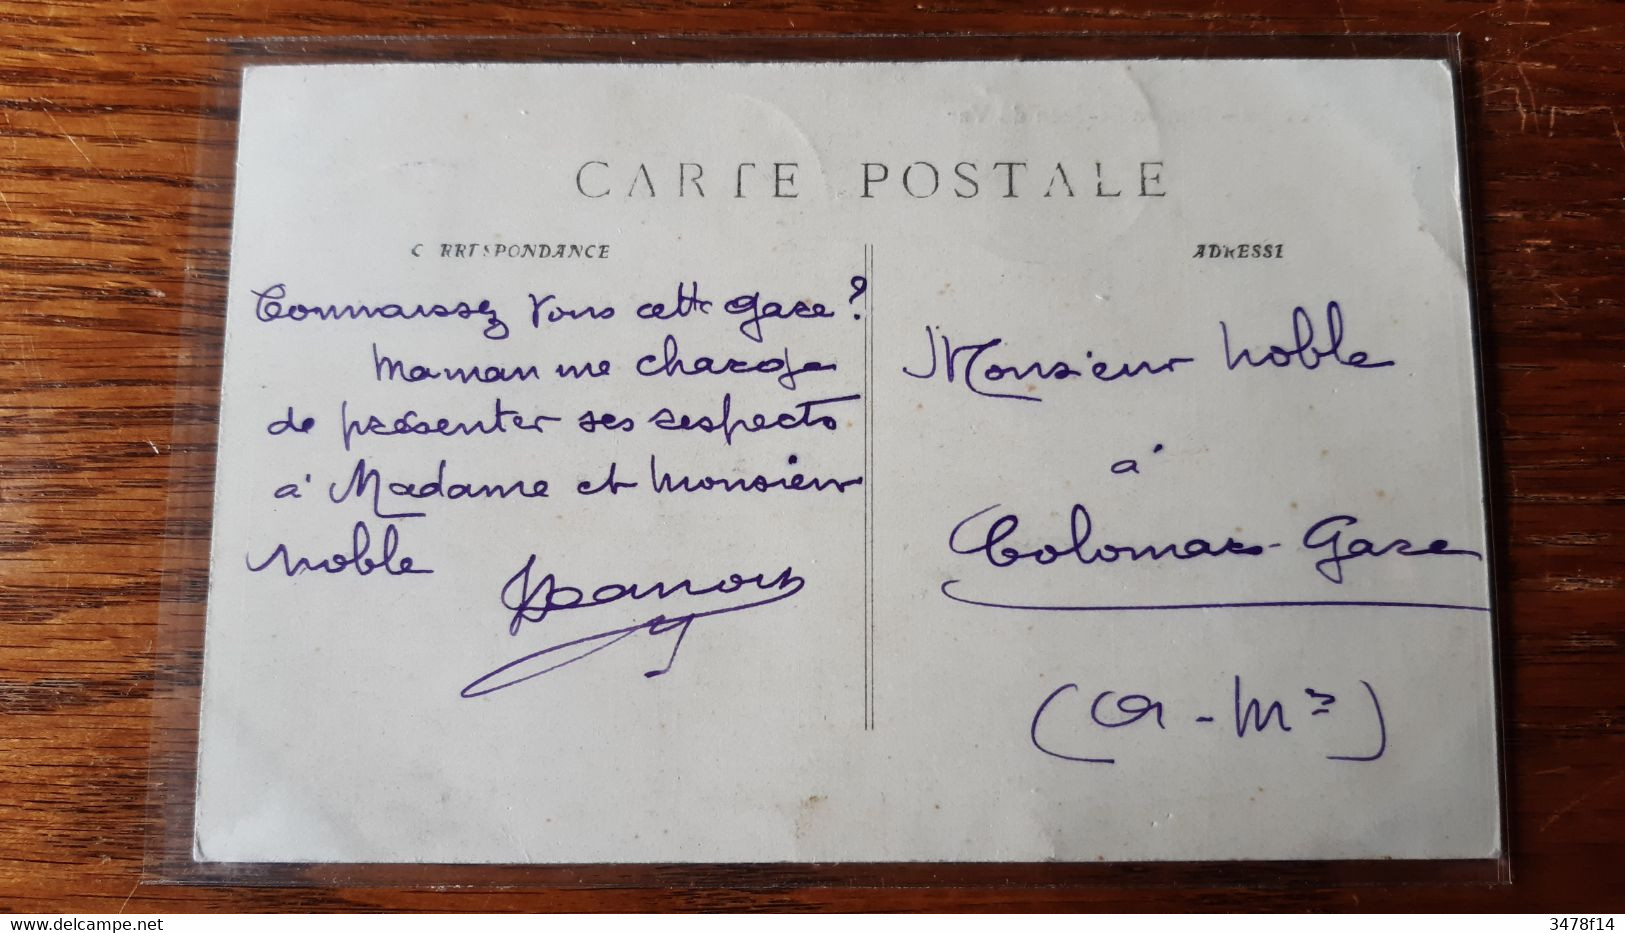 CARTE POSTALE
CORRESPONDANCE
ADRESSE
Connaissez vous cette gare ?
Maman me charge
de présenter ses respects
à Madame et Monsieur
Noble
Monsieur Noble
à
Colomars-Gare
(A-Mes)
www.delcampe.net
3478f14